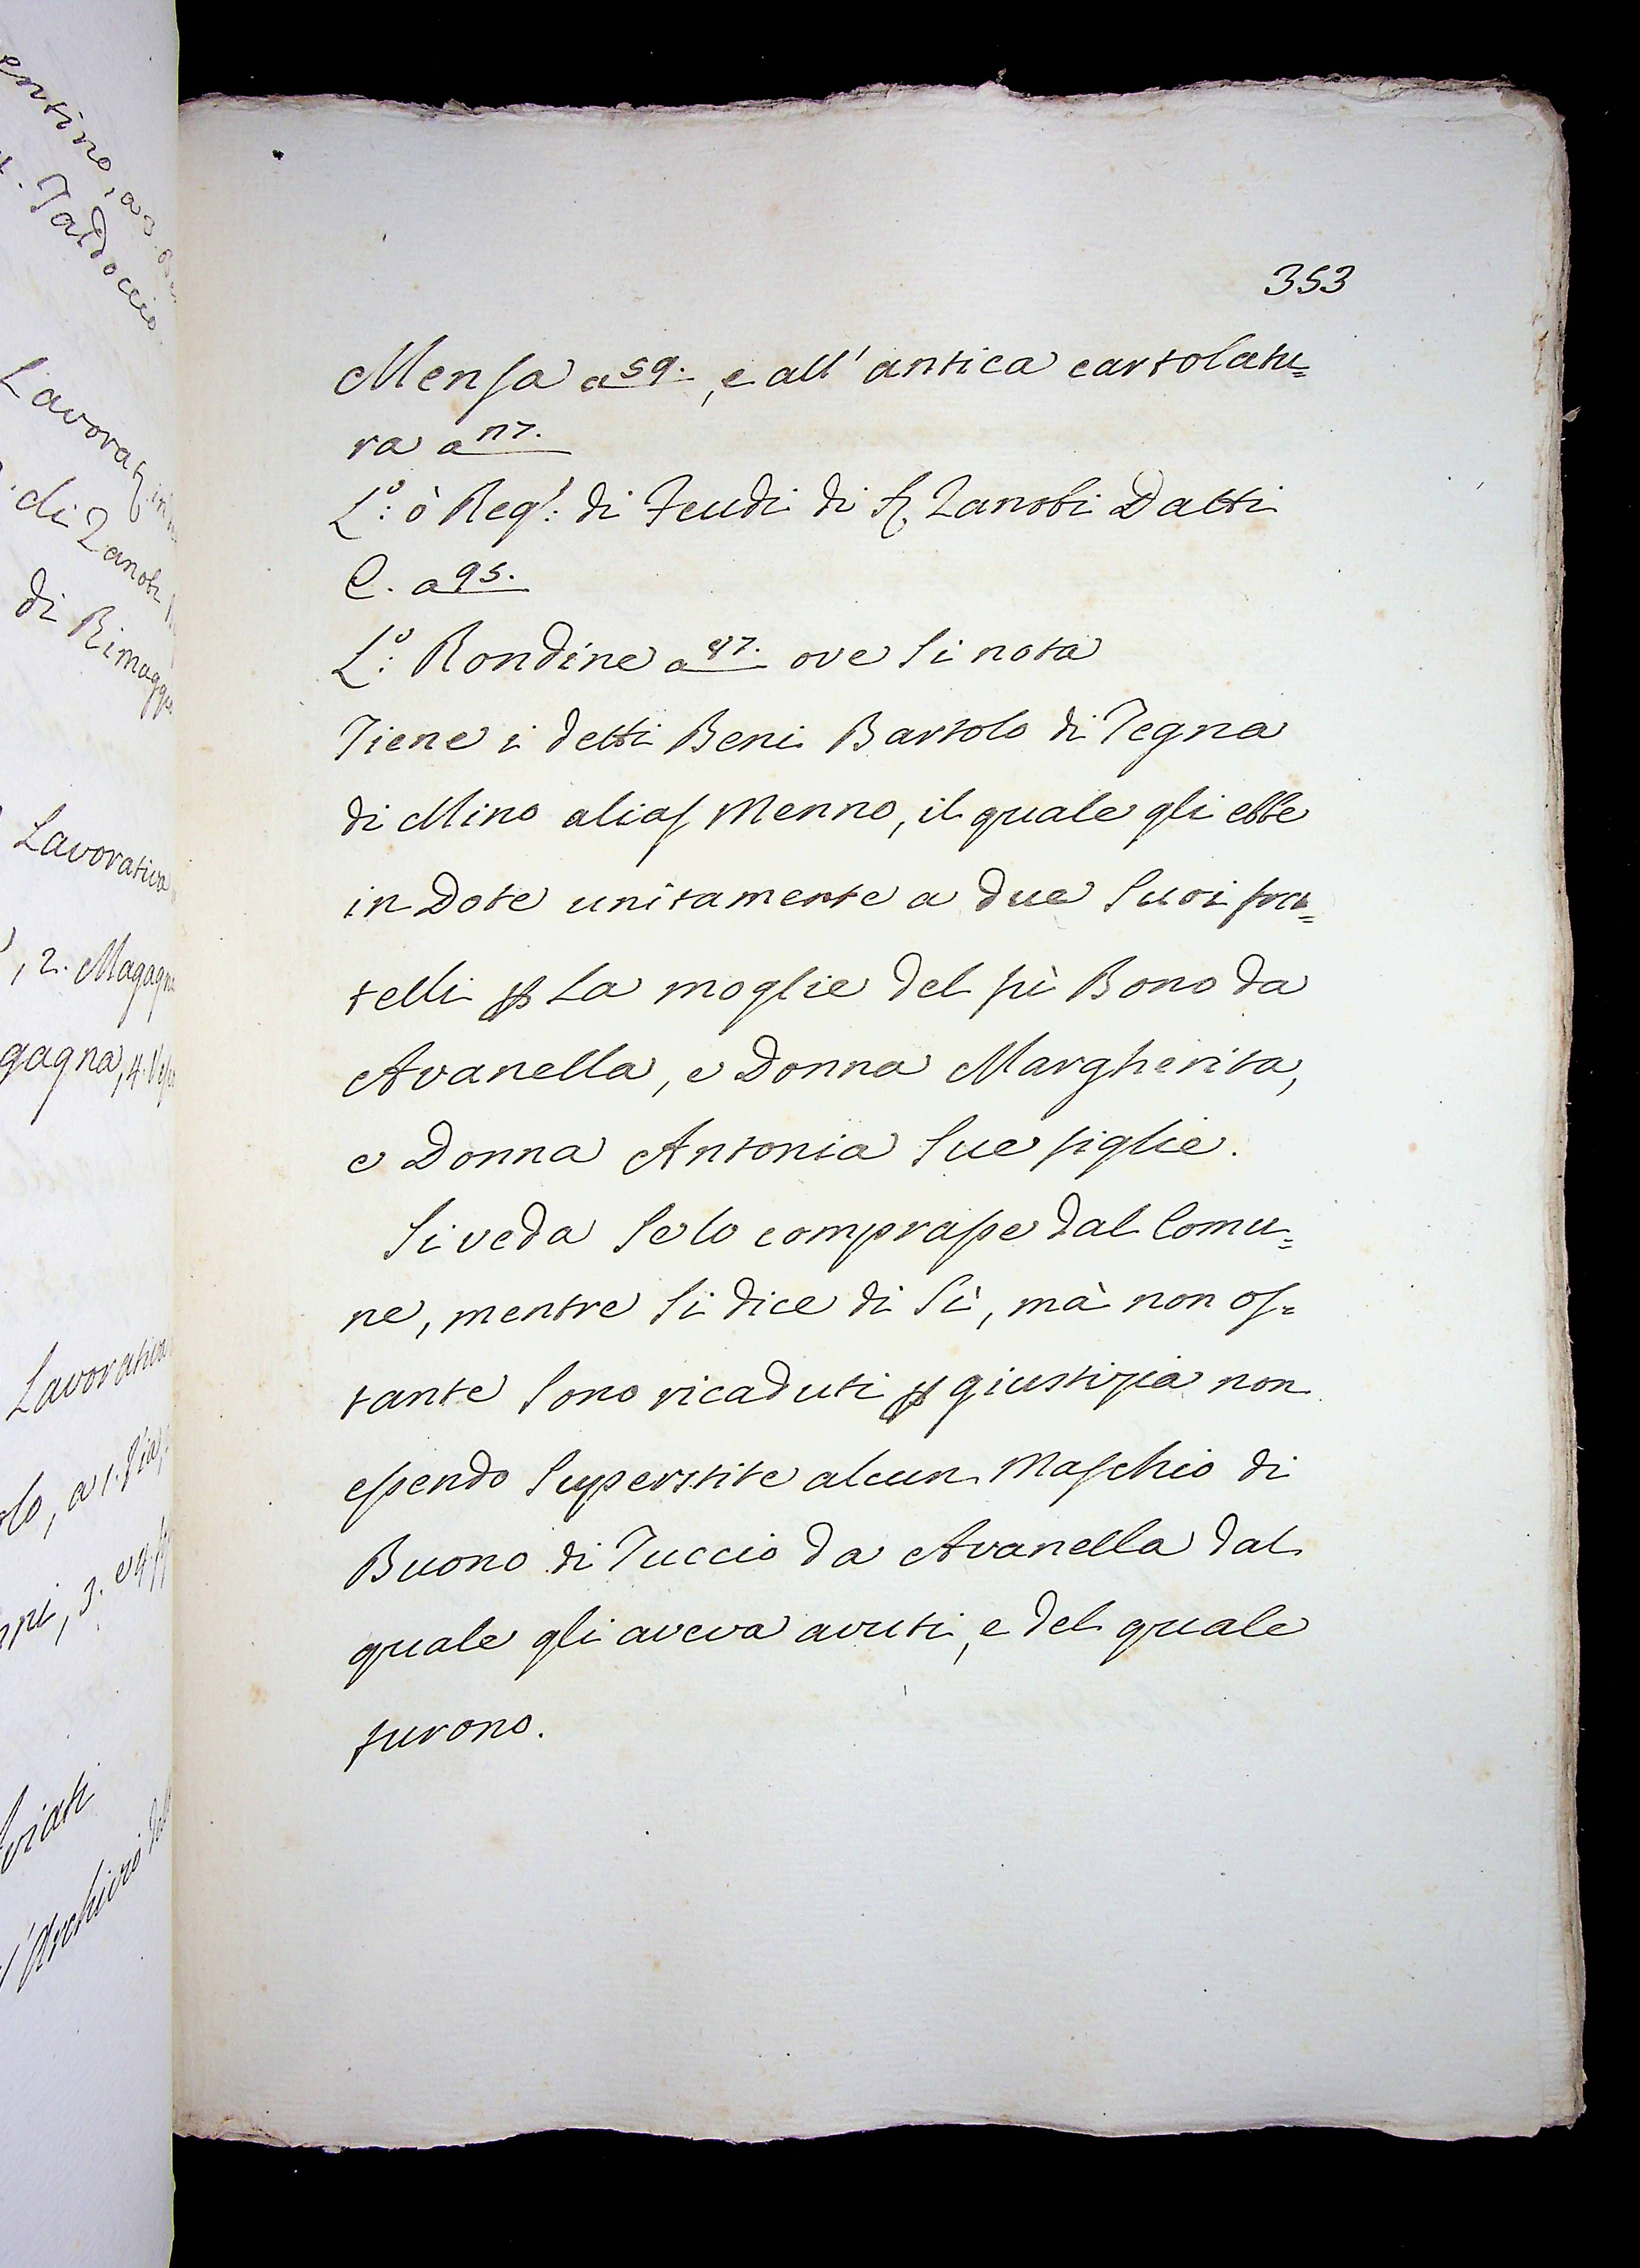 353
Mensa a 59., e all' antica cartolatu=
ra a 117.
L.o: ò Reg.o: di Feudi di S. Zanobi Datti
C. a 95.
L.o: Rondine a 97. ove si nota
Tiene i detti Beni Bartolo di Tegna
di Mino alias Menno, il quale gli ebbe
in Dote unitamente a due suoi fra=
telli p La moglie del fù Bono da
Avanella, e Donna Margherita,
e Donna Antonia sue figlie.
Si veda se lo comprasse dal Comu=
ne, mentre si dice di Sì, mà non os=
tante sono ricaduti p giustizia non
essendo superstite alcun Maschio di
Buono di Tuccio da Avanella dal
quale gli aveva avuti, e del quale
furono.
entino, a 3.
Taddoccio
Lavorat
di Zanobi
di Rimaggi
Lavorativa
, 2. Magagn
gagna, 4.
Lavorativa
olo, a 1. Via
ni, 3. e 4.
viati
l'Archivio